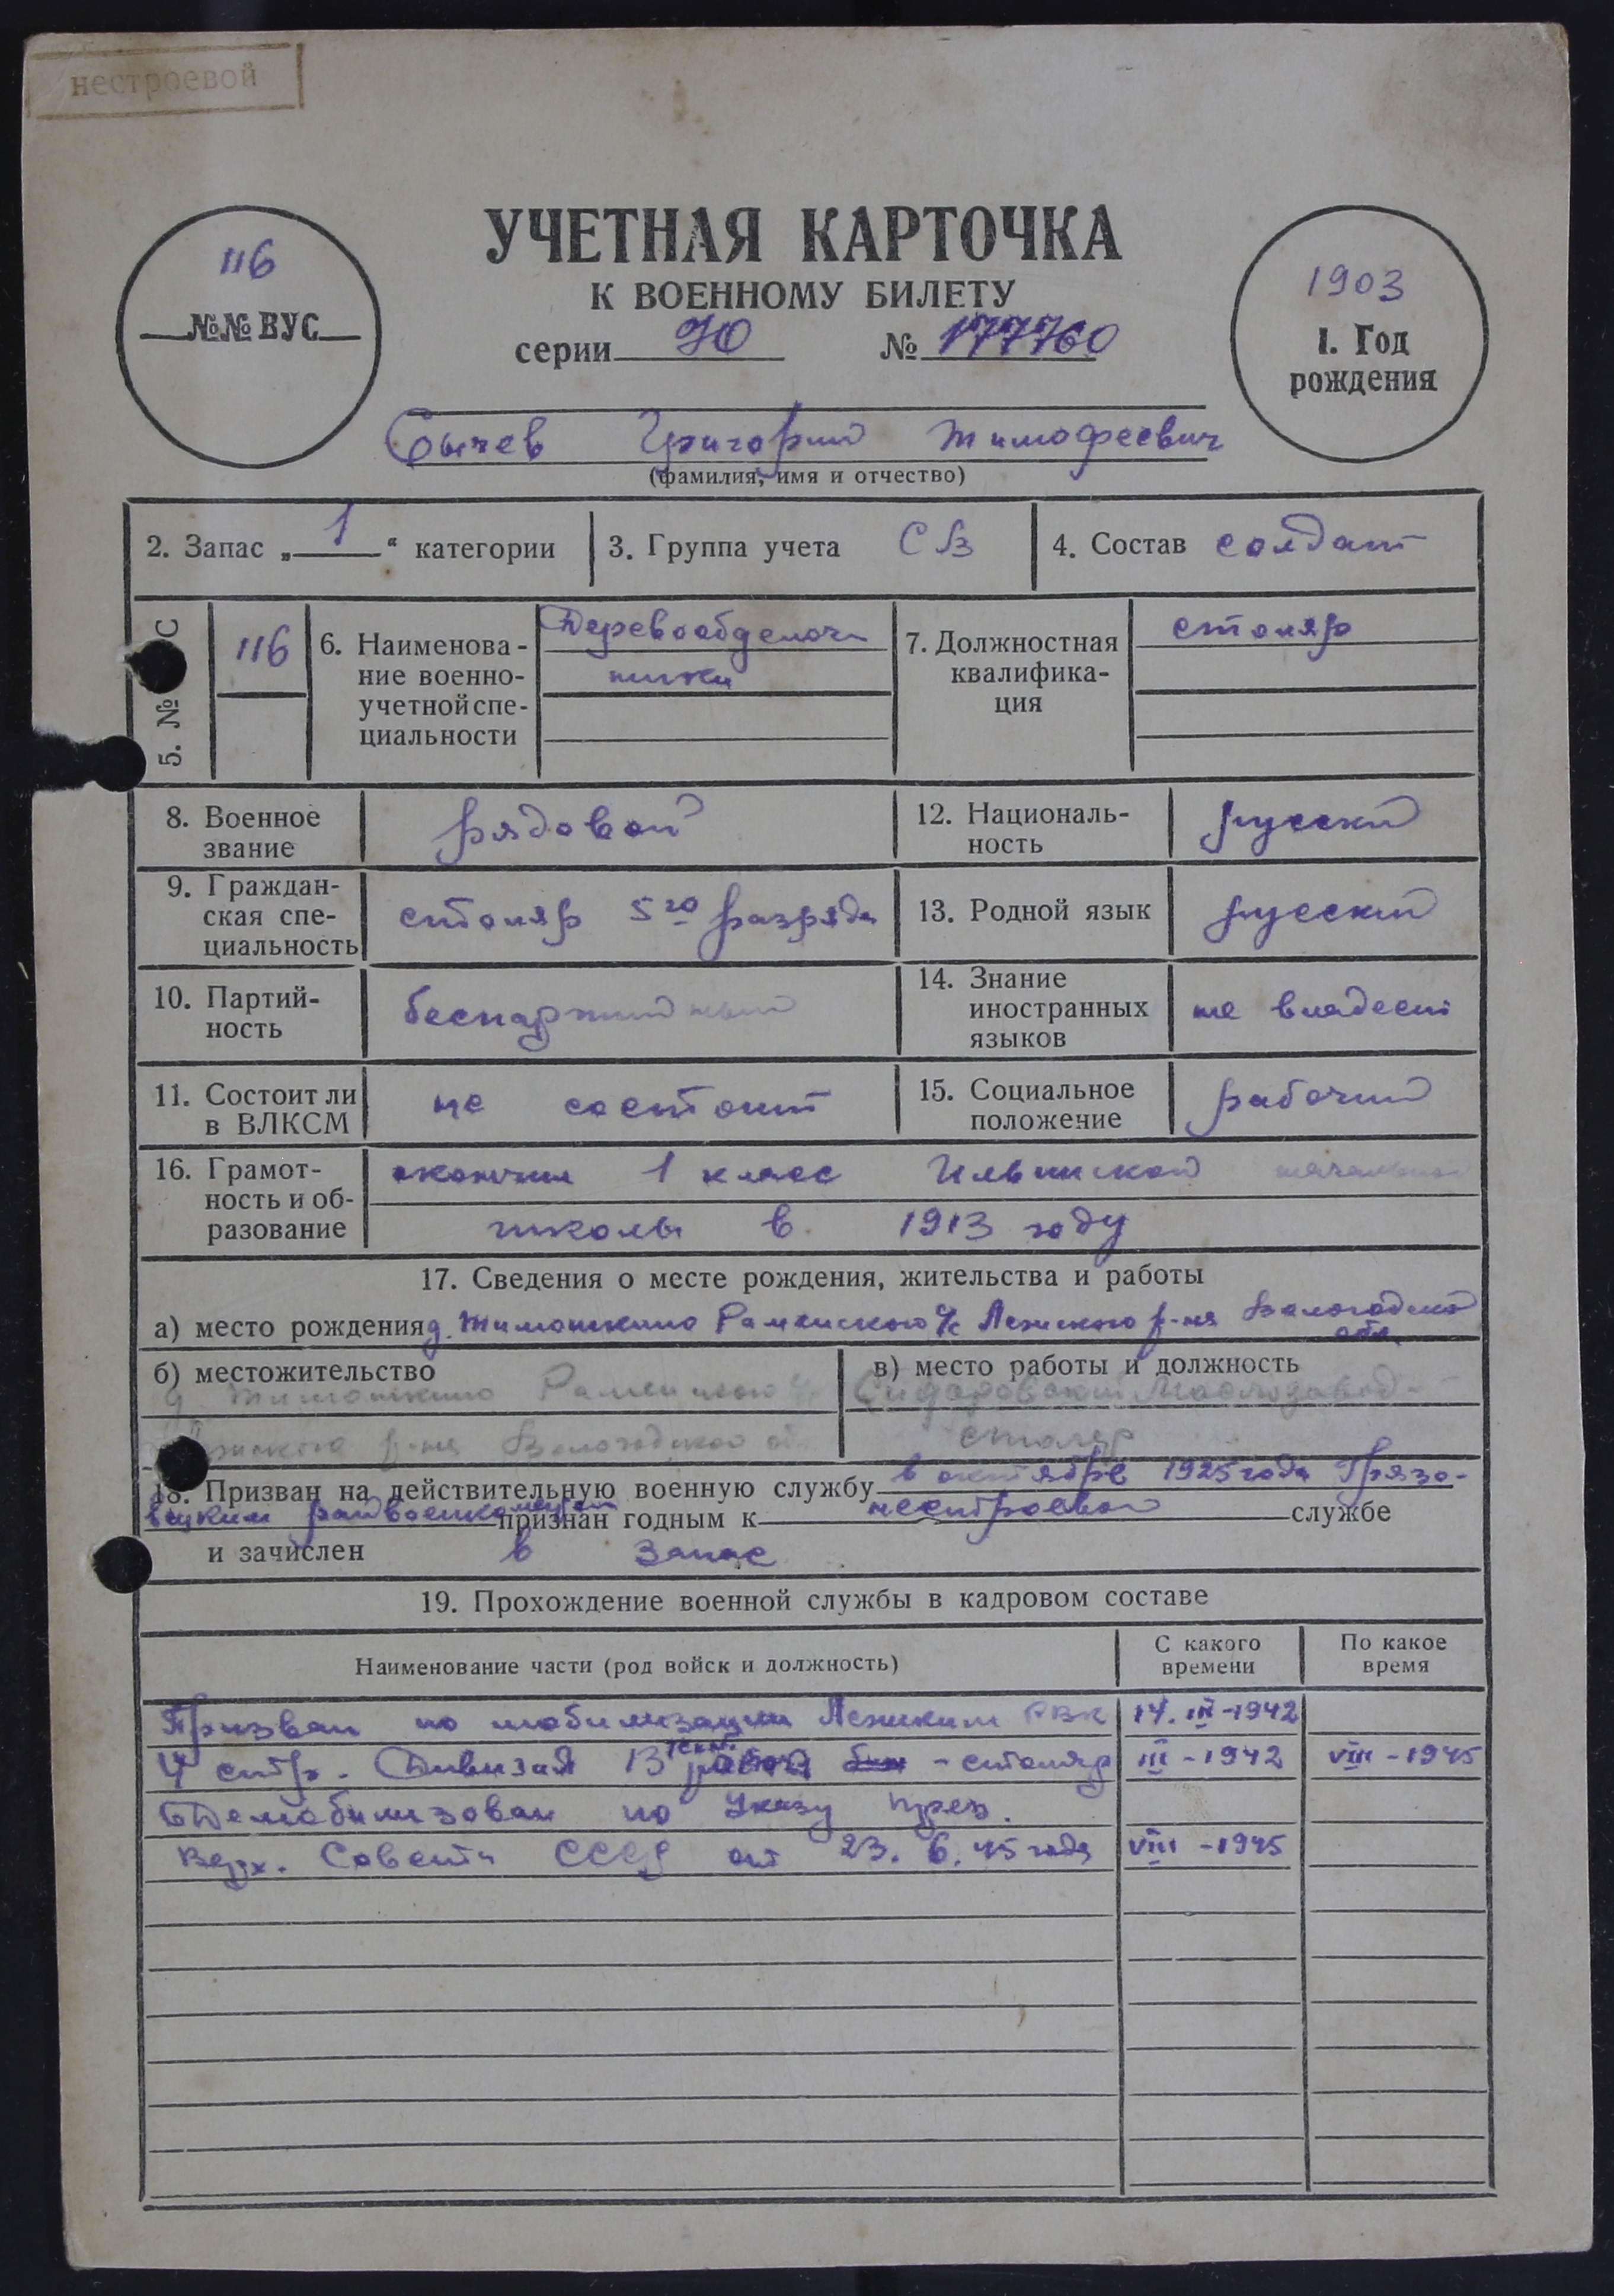 нестроевой
УЧЕТНАЯ КАРТОЧКА
К ВОЕННОМУ БИЛЕТУ
116
№№ ВУС
серии № 177760
1903
1. Год
рождения
Сычев Григорий Тимофеевич
(фамилия, имя и отчество)
2. Запас „ 1 “ категории
3. Группа учета СВ
4. Состав солдат
5. № С
116
6. Наименова-
ние военно-
учетной спе-
циальности
Деревообделоч
ники
7. Должностная
квалифика-
ция
столяр
8. Военное
звание
рядовой
12. Националь-
ность
русский
9. Граждан-
ская спе-
циальность
столяр 5го разряда
13. Родной язык
русский
10. Партий-
ность
беспартийный
14. Знание
иностранных
языков
не владеет
11. Состоит ли
в ВЛКСМ
не состоит
15. Социальное
положение
рабочий
16. Грамот-
ность и об-
разование
окончил 1 класс Ильинской начальной
школы в 1913 году
17. Сведения о месте рождения, жительства и работы
а) место рождения д. Тимошкино Раменского с/с Лежского р-на Вологодской
обл.
б) местожительство
д. Тимошкино Раменского с/с
Лежского р-на Вологодской обл.
в) место работы и должность
Сидоровский Маслозавод-
столяр
18. Призван на действительную военную службу в октябре 1925 года Грязо-
вецким райвоенкоматом признан годным к нестроевой службе
и зачислен в запас
19. Прохождение военной службы в кадровом составе
Наименование части (род войск и должность)
С какого
времени
По какое
время
Призван по мобилизации Лежским РВК 14. III-1942
4 стр. Дивизия 13 - столяр III-1942 VIII-1945
Демобилизован по Указу през.
Верх. Совета СССР от 23. 6. 45 года VIII-1945